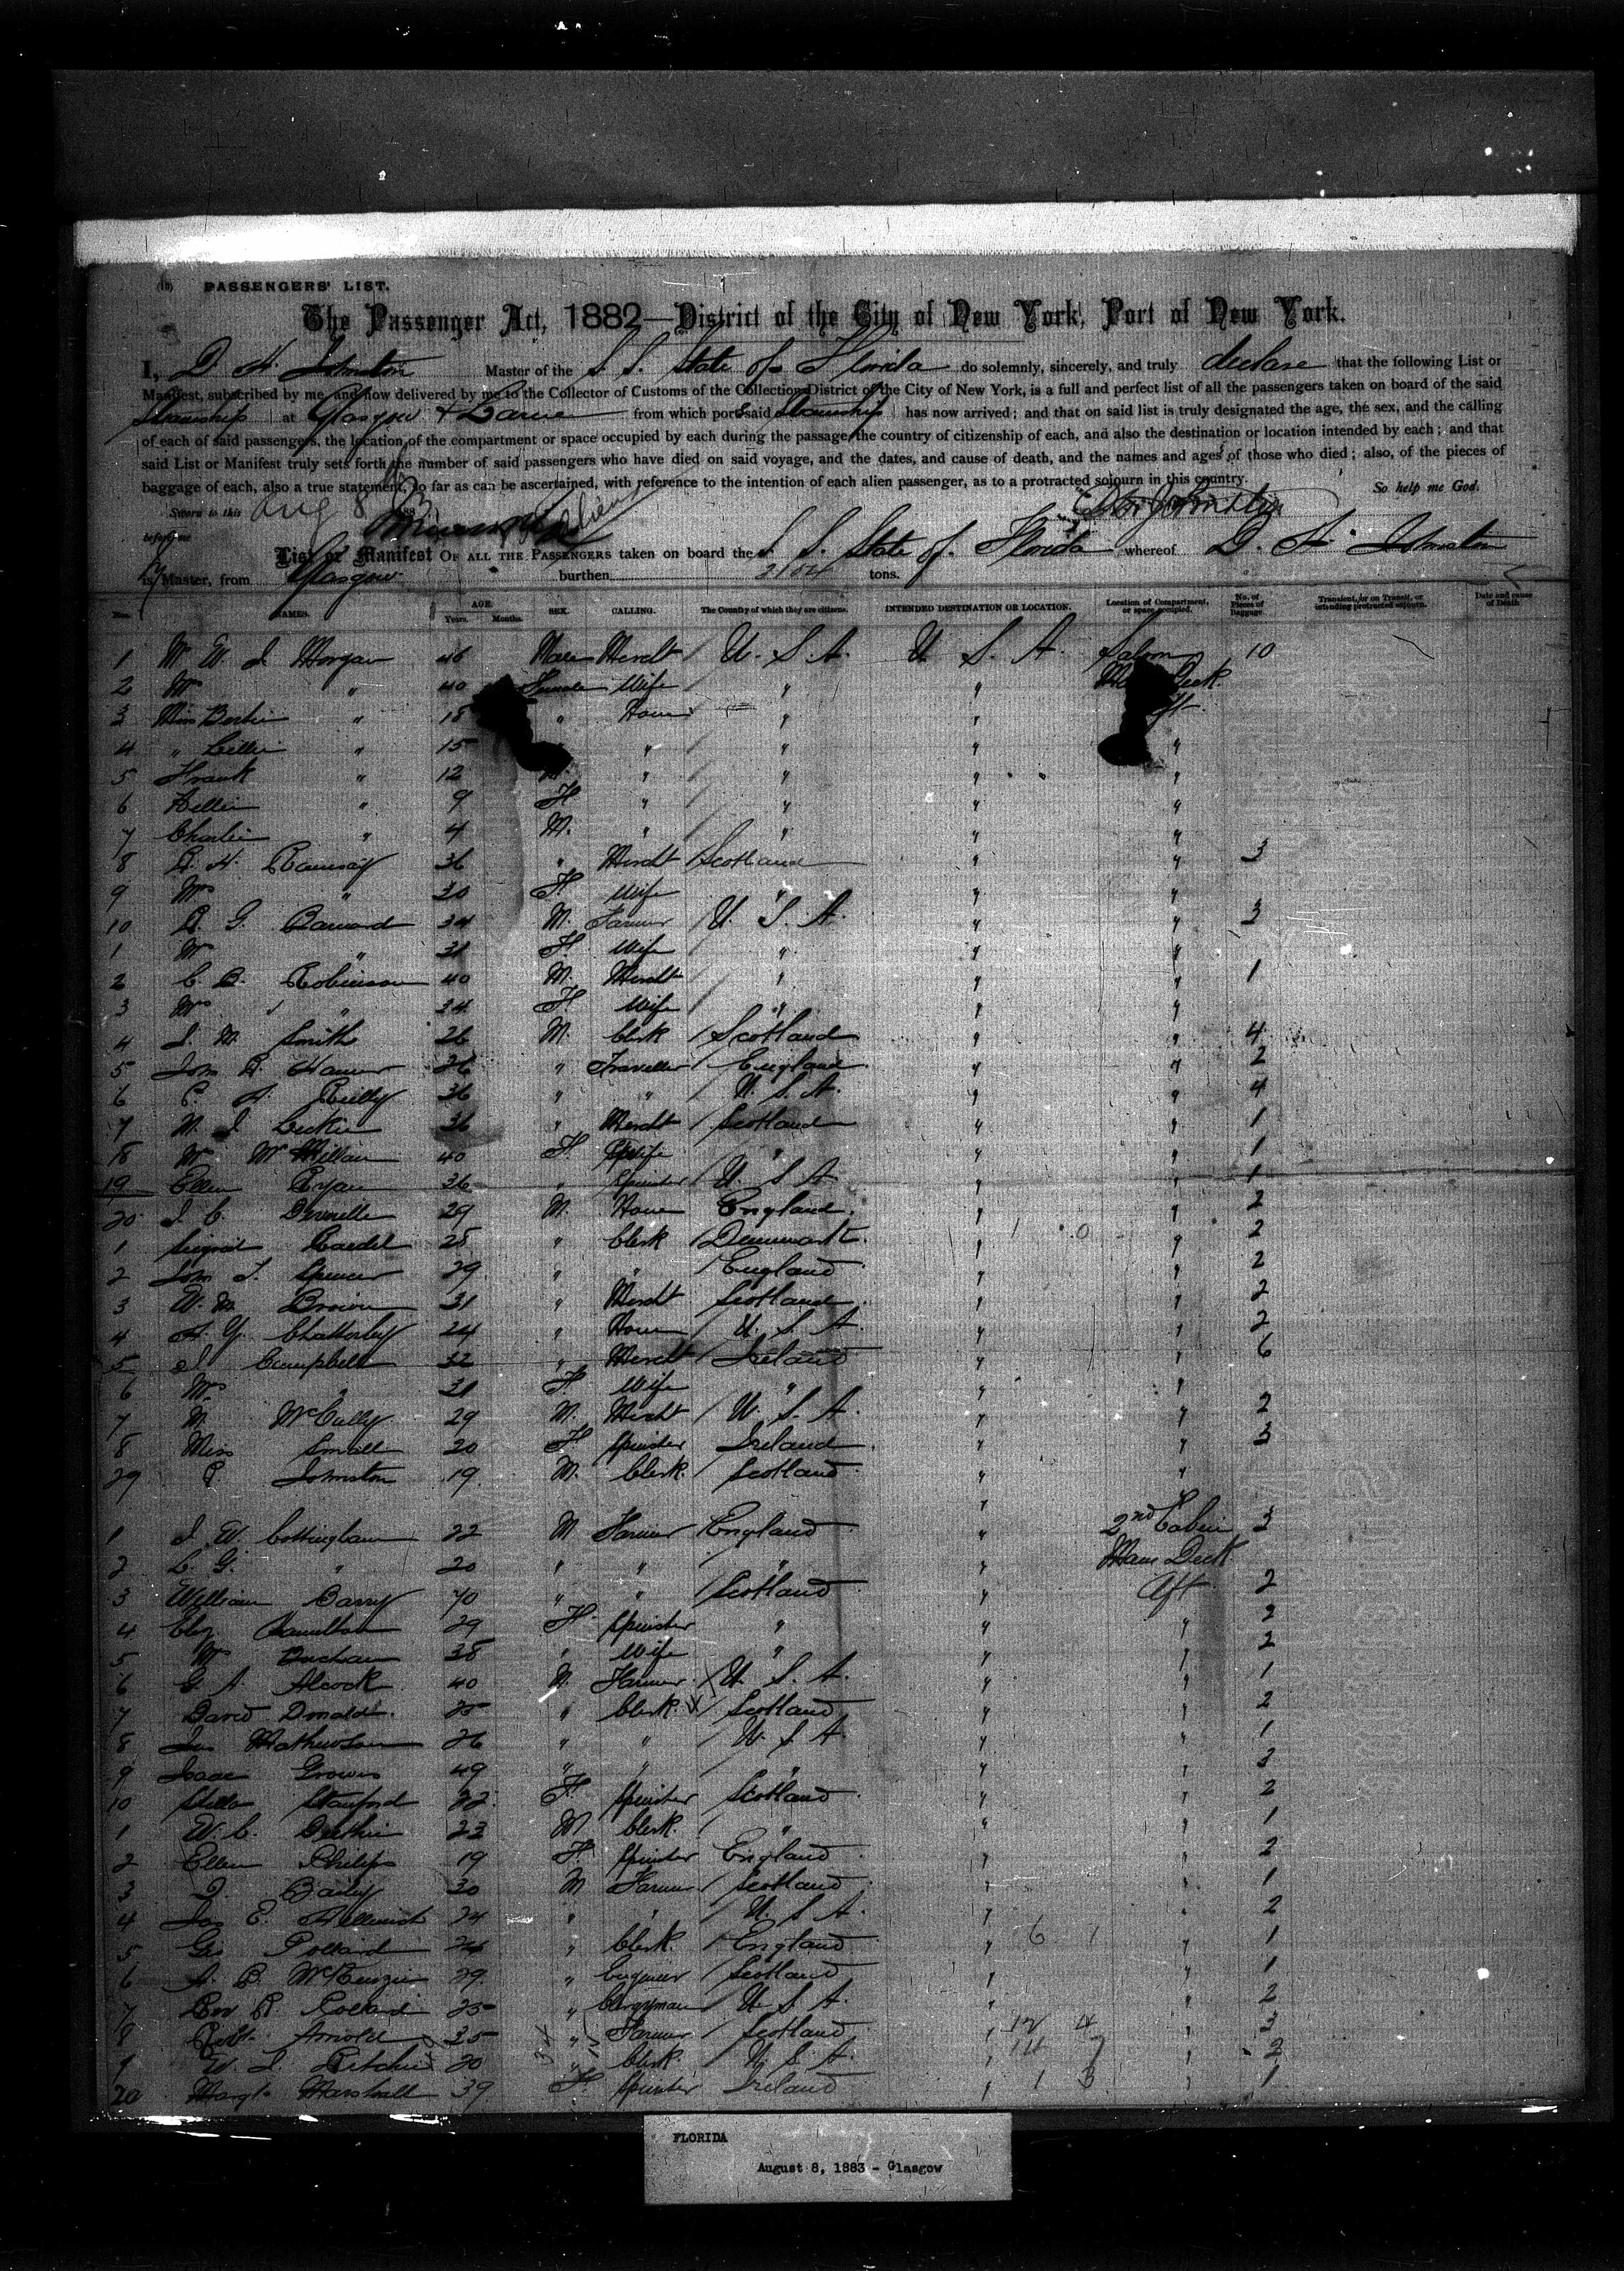 (18) PASSENGERS' LIST.
The Passenger Act, 1882—District of the City of New York, Port of New York.
I, D. H. Johnston Master of the S. S. State of Florida do solemnly, sincerely, and truly declare that the following List or
Manifest, subscribed by me, and now delivered by me to the Collector of Customs of the Collection District of the City of New York, is a full and perfect list of all the passengers taken on board of the said
Steamship at Glasgow & Larne from which ports said Steamship has now arrived; and that on said list is truly designated the age, the sex, and the calling
of each of said passengers, the location of the compartment or space occupied by each during the passage, the country of citizenship of each, and also the destination or location intended by each; and that
said List or Manifest truly sets forth the number of said passengers who have died on said voyage, and the dates, and cause of death, and the names and ages of those who died; also, of the pieces of
baggage of each, also a true statement, so far as can be ascertained, with reference to the intention of each alien passenger, as to a protracted sojourn in this country. So help me God.
Sworn to this Aug 8 1883
before me
List or Manifest OF ALL THE PASSENGERS taken on board the S. S. State of Florida whereof D. H. Johnston
is Master, from Glasgow burthen tons.
Nos. NAMES. AGE. Years. Months. SEX. CALLING. The Country of which they are citizens. INTENDED DESTINATION OR LOCATION. Location of Compartment, or space occupied. No. of Pieces of Baggage. Transient, or on Transit, or intending protracted sojourn. Date and cause of Death
1 W. J. Morgan 46 Male Mercht U. S. A. U. S. A. Saloon 10
2 " 40 Female Wife " " Deck
3 Miss " 18 " " " Aft
4 " Lillie " 15 " " " "
5 Frank " 12 " " " "
6 " 9 F. " " " "
7 Charlie " 4 M. " " " "
8 H. Ramsay 36 " Mercht Scotland " " 3
9 Mrs " 30 F. Wife " " "
10 G. Barnard 34 M. Farmer U. S. A. " " 3
1 " 31 F. Wife " " "
2 C. B. Robinson 40 M. Mercht " " " 1
3 Mrs " 34 F. Wife " " "
4 J. M. Smith 26 M. Clerk Scotland " " 4
5 John 26 " Traveller England " " 2
6 P. H. Reilly 36 " " U. S. A. " " 4
7 W. J. Leckie 36 " Mercht Scotland " " 1
18 McMillan 40 F. Wife " " " 1
19 Ellen Ryan 36 " Spinster U. S. A. " " 1
20 J. C. 29 M. England. " " 2
1 25 " Clerk Denmark. " " 2
2 John S. Spencer 29 " " England " " 2
3 W. M. Brown 31 " Mercht Scotland " " 2
4 A. Y. Chatterley 24 " U. S. A. " " 2
5 J. Campbell 32 " Mercht Ireland " " 6
6 Mrs " 31 F. Wife " " "
7 M. McCully 29 M. Mercht U. S. A. " " 2
8 Miss Small 20 F. Spinster Ireland " " 3
29 P Johnston 19 M. Clerk. Scotland " "
1 J. W. Cottingham 22 M Farmer England " 2nd Cabin 3
2 C. G. " 20 " " " " Main Deck
3 William Barry 70 " " Scotland " Aft 2
4 Hamilton 29 F. Spinster " " " 2
5 Buchan 38 " Wife " " " 2
6 G. A. Alcock 40 M. Farmer U. S. A. " " 1
7 David Donald 25 " Clerk Scotland " " 2
8 Jas Mathewson 26 " " U. S. A. " " 1
9 Isaac 49 " " " " " 3
10 Stella Stanford 22 F. Spinster Scotland " " 2
1 W. C. 23 M Clerk. " " " 1
2 Ellen Philips 19 F. Spinster England " " 2
3 J. Baily 30 M Farmer Scotland " " 1
4 Jas E. 24 " " U. S. A. " " 2
5 Geo Pollard 24 " Clerk. England " " 1
6 A. B. McKenzie 29 " Engineer Scotland " " 1
7 Rev R. Pollard 25 " Clergyman U. S. A. " " 2
8 Robt. Arnold 35 " Farmer Scotland " " 3
9 W. J. Ritchie 20 " Clerk. U. S. A. " " 2
20 Margt. Marshall 39 F. Spinster Ireland " " 1
FLORIDA
August 8, 1883 - Glasgow